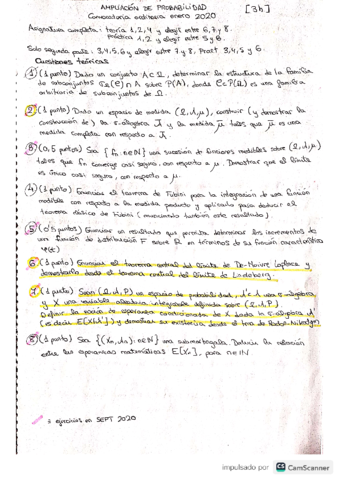 AMPLIACIÓN DE PROBABILIDAD [3h]
Convocatoria ordinaria enero 2020
Asignatura completa: teoría 1,2,4 y elegir 6,7 y 8.
práctica 1,2 y elegir 5 y 6.
Solo segunda parte: 3,4,5,6 y elegir entre 7 y 8. Pract 3,4,5 y 6.
Cuestiones teóricas
① (1 punto) Dado un conjunto A ⊂ Ω, determinar la estructura de la familia
de subconjuntos σ_Ω(C) ∩ A sobre P(A), donde C ⊂ P(Ω) es una familia
arbitraria de subconjuntos de Ω.
② (1 punto) Dado un espacio de medida (Ω, A, μ), construir (y demostrar la
construcción de) la σ-álgebra Ā y la medida μ̄ tales que μ̄ es una
medida completa con respecto a Ā.
③ (0,5 puntos) Sea {fn, n∈N} una sucesión de funciones medibles sobre (Ω, A, μ)
tales que fn converge casi segura, con respecto a μ. Demostrar que el límite
es único casi seguro, con respecto a μ.
④ (1 punto) Enunciar el teorema de Fubini para la integración de una función
medible con respecto a la medida producto y aplicarlo para deducir el
teorema clásico de Fubini (enunciando también este resultado).
⑤ (0'5 puntos) Enunciar un resultado que permita determinar los incrementos de
una función de distribución F sobre R en términos de su función característica
φ(t)
⑥ (1 punto) Enunciar el teorema central del límite de De-Moivre Laplace y
demostrarlo dado el teorema central del límite de Lindeberg.
⑦ (1 punto) Sean (Ω, A, P) un espacio de probabilidad, A' ⊂ A una σ-álgebra
y X una variable aleatoria integrable definida sobre (Ω, A, P).
Definir la noción de esperanza condicionada de X dada la σ-álgebra A'
(es decir E[X|A']) y demostrar su existencia dado el tma de Radon-Nikodym
⑧ (1 punto) Sea {(Xn, An): n∈N} una submartingala. Deducir la relación
entre las esperanzas matemáticas E[Xn], para n∈N
3 ejercicios en SEPT 2020
impulsado por CS CamScanner